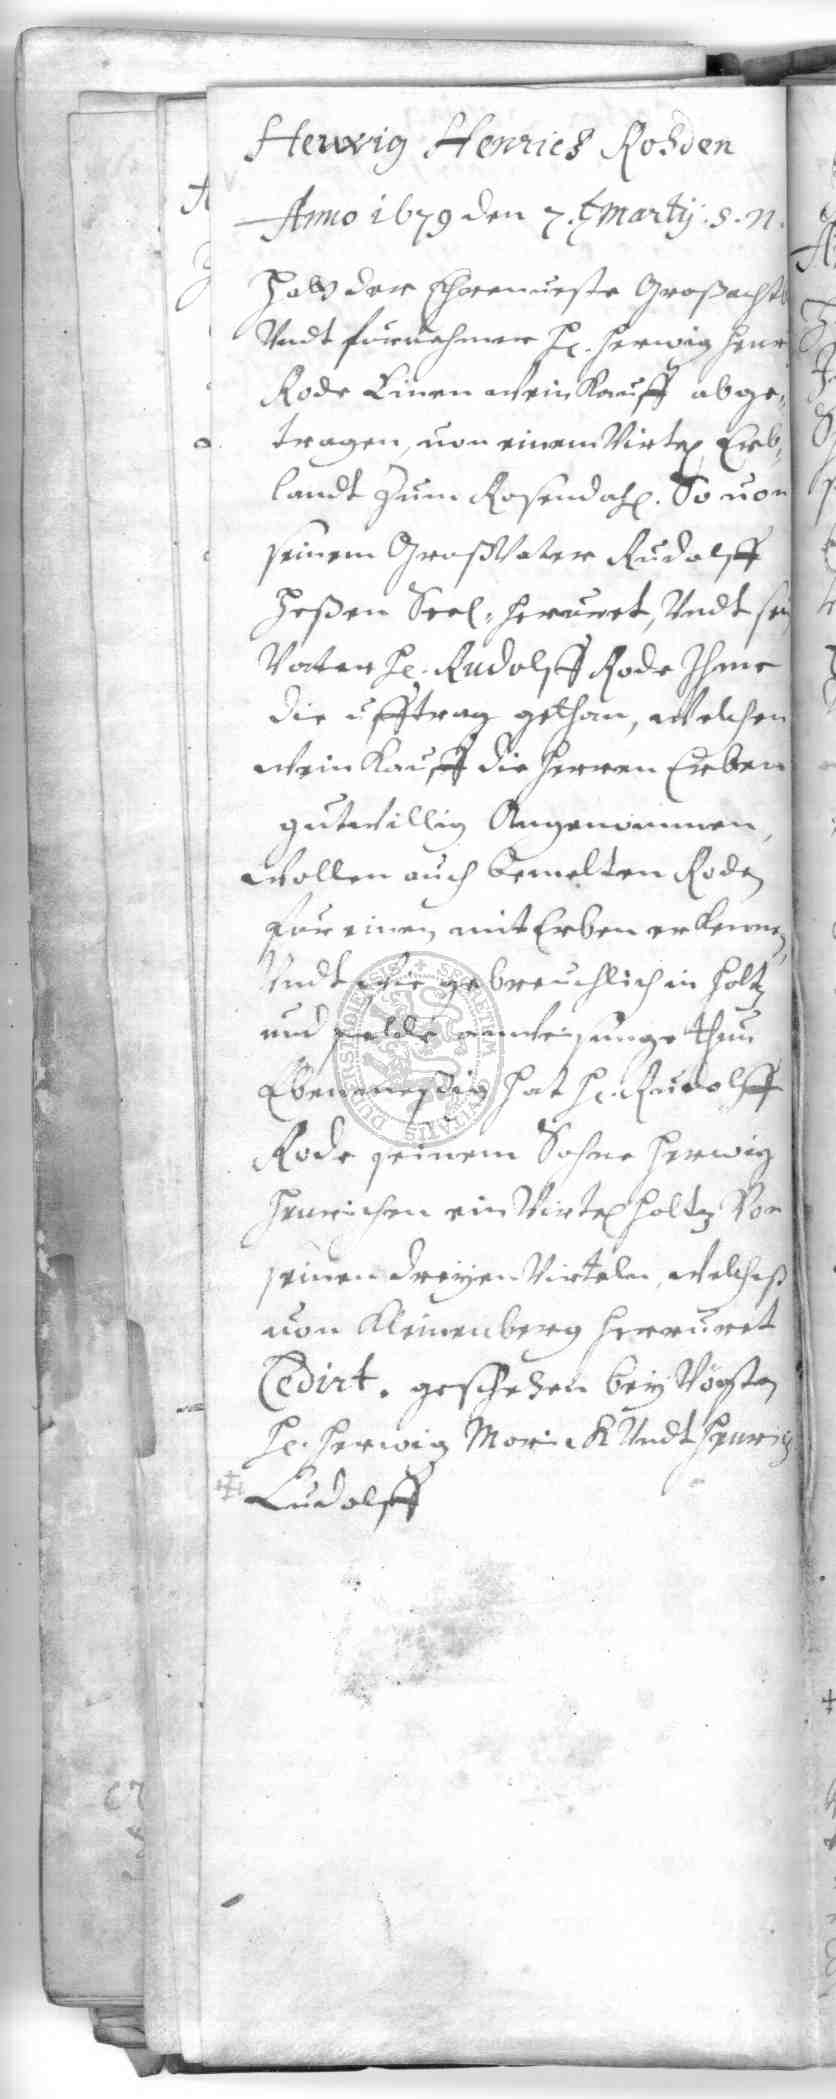 Herwig Henrich Rohden
Anno 1679 den 7. Martij. s. n.
Hatt der Ehrenueste Großacht
Vndt fürnehmer H. Herwig Henr
Rode Einen weinkauff abge-
tragen, uon einem Virtel Erb-
landt Zum Rosendahl. So uon
seinem GroßVater Rudolff
Heßen Seel. herruret, Vndt sein
Vater H. Rudolff Rode Ihme
die ufftrag gethan, welchen
weinkauff die Herren Erben
gutwillig Angenommen,
wollen auch bemelten Roden
für einen mit Erben erkennen,
Vndt wie gebreuchlich in holtz
und felde anweisunge thun
Ebenmeßig hat H. Rudolff
Rode seinem Sohne Herwig
Henrichen ein Virtel holtz Von
seinen dreyen Virteln, welches
uon Kleinenberg herruret
Cedirt. geschehen bey Vögten
H. Herwig Morick Vndt Henrig
Ludolff
SIGILLUM UNIVERSITATIS DUISBURGENSIS